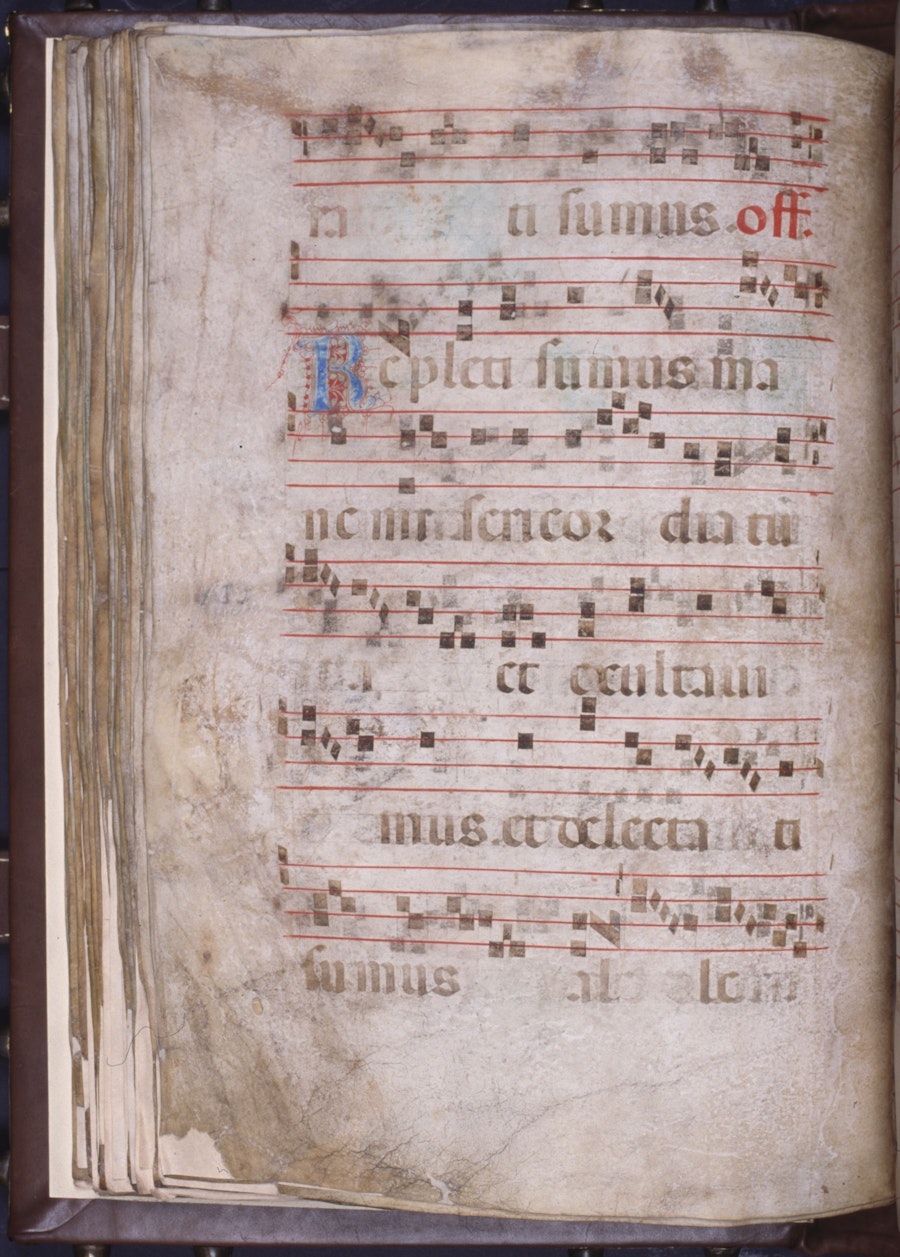 ra ti sumus. off.
Repleti sumus ma
ne misericor dia tu
a et exultaui
mus. et delecta ti
sumus ale